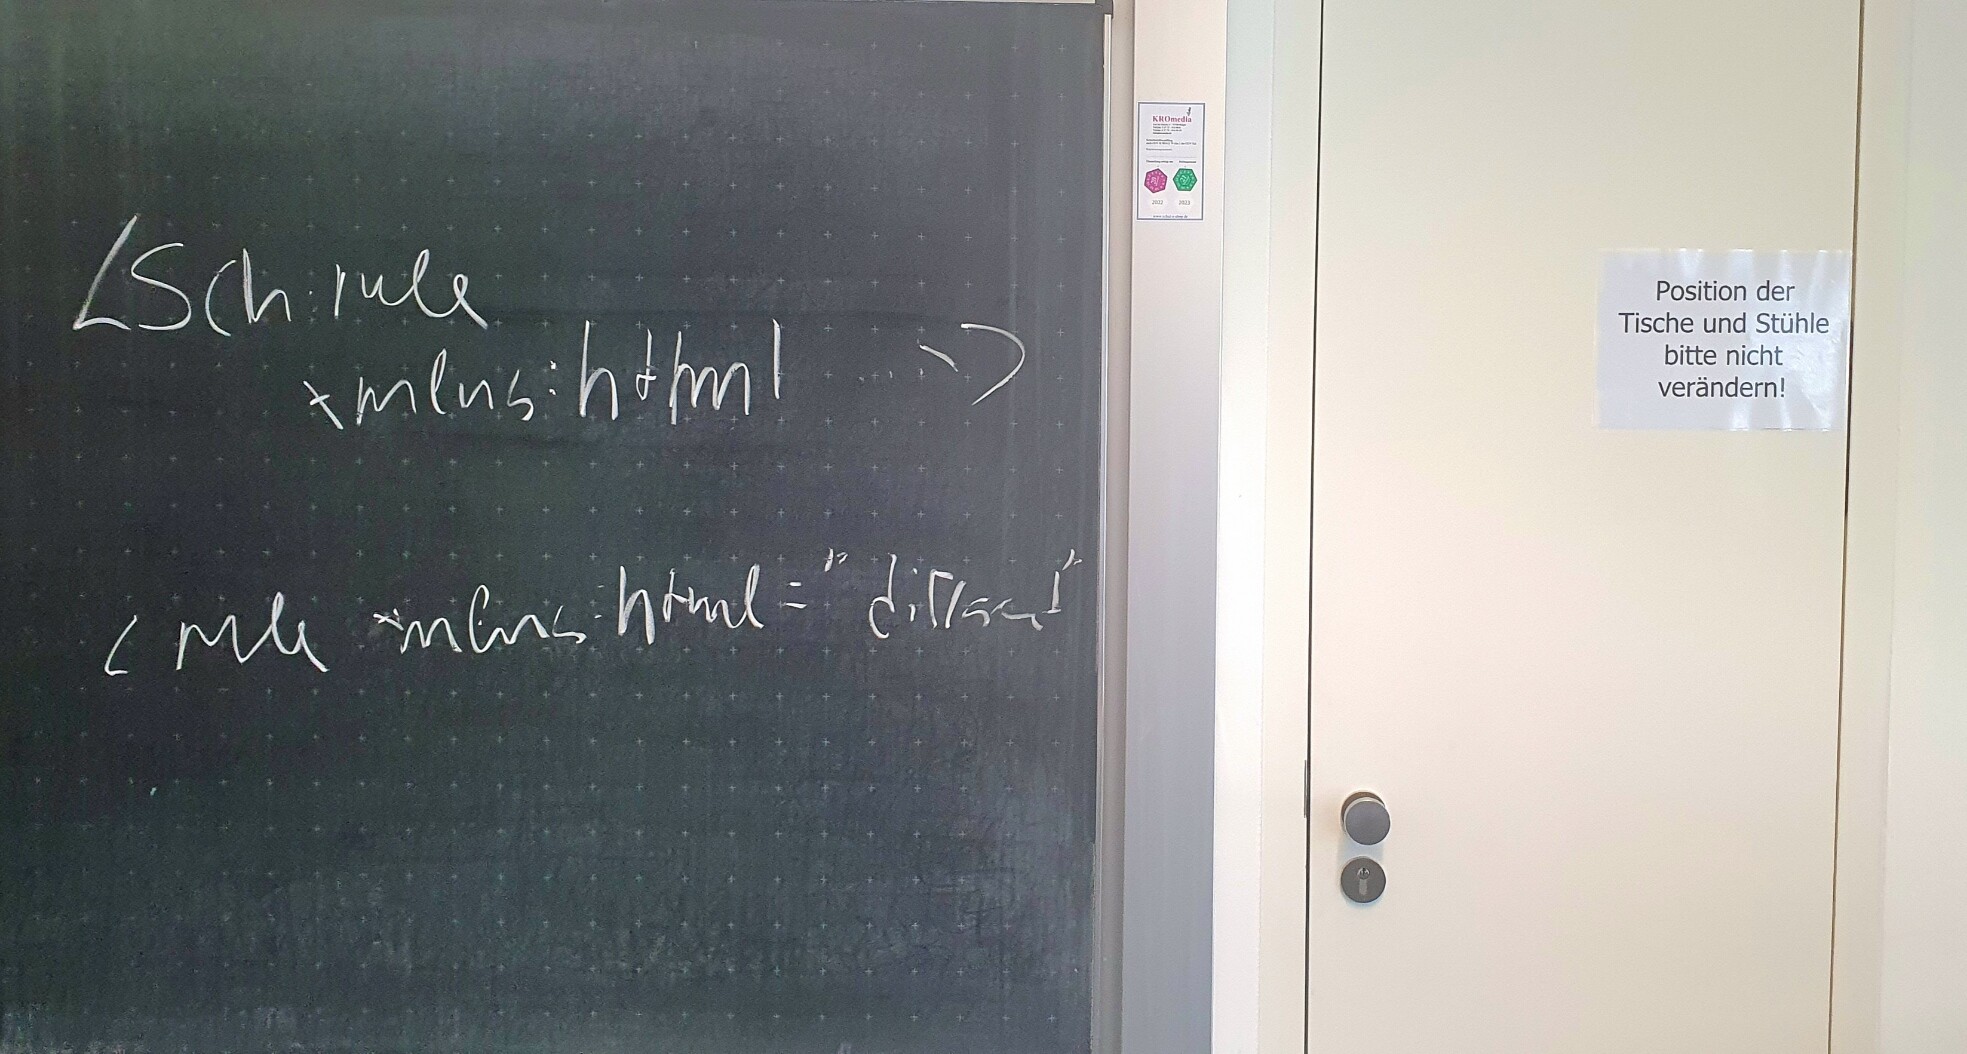 <Sch:rule
xmlns:html ... >
<rule xmlns:html="different"
KROmedia
2022 2023
Position der
Tische und Stühle
bitte nicht
verändern!